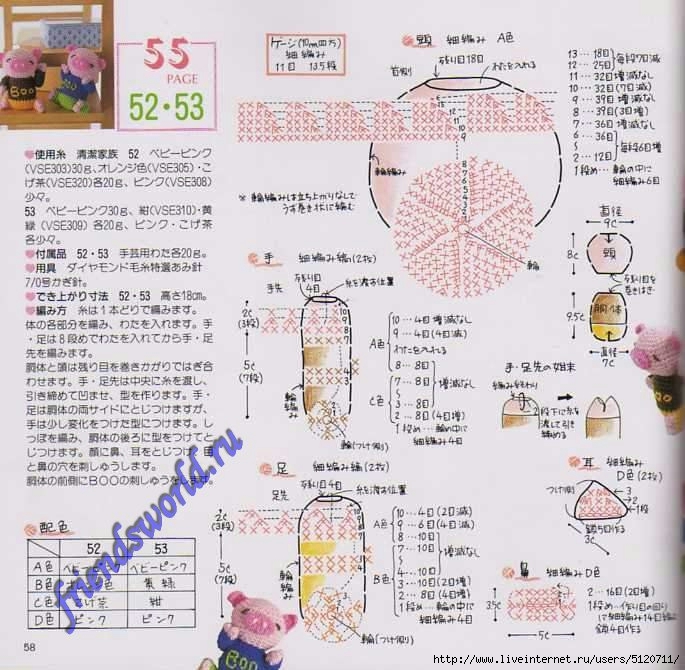 BOO
55
PAGE
52・53
♥使用糸 清潔家族 52 ベビーピンク
(VSE303)30g、オレンジ色(VSE305)・こ
げ茶(VSE320)各20g、ピンク(VSE308)
少々。
53 ベビーピンク30g、紺(VSE310)・黄
緑(VSE309)各20g、ピンク・こげ茶
各少々。
♥付属品 52・53 手芸用わた各20g。
♥用具 ダイヤモンド毛糸特選あみ針
7/0号かぎ針。
♥でき上がり寸法 52・53 高さ18cm。
♥編み方 糸は1本どりで編みます。
体の各部分を編み、わたを入れます。手
・足は8段めでわたを入れてから手・足
先を編みます。
胴体と頭は残り目を巻きかがりではぎ合
わせます。手・足先は中央に糸を渡し、
引き締めて凹ませ、型を作ります。手・
足は胴体の両サイドにとじつけますが、
手は少し変化をつけた型につけます。し
っぽを編み、胴体の後ろに型をつけてと
じつけます。顔に鼻、耳をとじつけ、目
と鼻の穴を刺しゅうします。
胴体の前側にBOOの刺しゅうをします。
配色
52 53
A色 ベビーピンク ベビーピンク
B色 黄緑
C色 こげ茶 紺
D色 ピンク ピンク
58
ゲージ(10cm四方)
細編み
11目 13.5段
頭 細編み A色
残り目18目
わたを入れる
首側
輪編み
※ 輪編みは立ち上がりなしで
うず巻き状に編む
輪
13…18目
12…25目
毎段7目減
11…32目増減なし
10…32目(7目減)
9…39目増減なし
8…39目(3目増)
7…36目増減なし
6…36目
5
2…12目
毎段6目増
1段め…輪の中に
細編み6目
直径
9c
8c
頭
残り目を
巻きはぎ
9.5c
胴体
直径
7c
手 細編み(2枚)
手先
残り目
4目
糸を渡す位置
2c
(3段)
5c
(7段)
輪編み
輪(つけ側)
A色
10…4目増減なし
9…4目(4目減)
わたを入れる
8…8目
C色
7…8目
3…8目
増減なし
2…8目(4目増)
1段め…輪の中に
細編み4目
手・足先の始末
編み終わり
段下に糸を
渡して引き
締める
足 細編み(2枚)
足先
残り目4目
糸を渡す位置
2c
(3段)
5c
(7段)
輪編み
輪(つけ側)
A色
10…4目(2目減)
9…6目(4目減)
8…10目
B色
7…10目
4…10目
増減なし
3…10目(2目増)
2…8目(4目増)
1段め…輪の中に
細編み4目
耳 細編み
D色(2枚)
つけ側
3
2
1段
鎖5目作る
鼻 細編み D色
3.5c
5c
2…16目(2目増)
1段め…作り目の回り
に細編み14目編む
鎖4目作る
friendsworld.ru
http://www.liveinternet.ru/users/5120711/